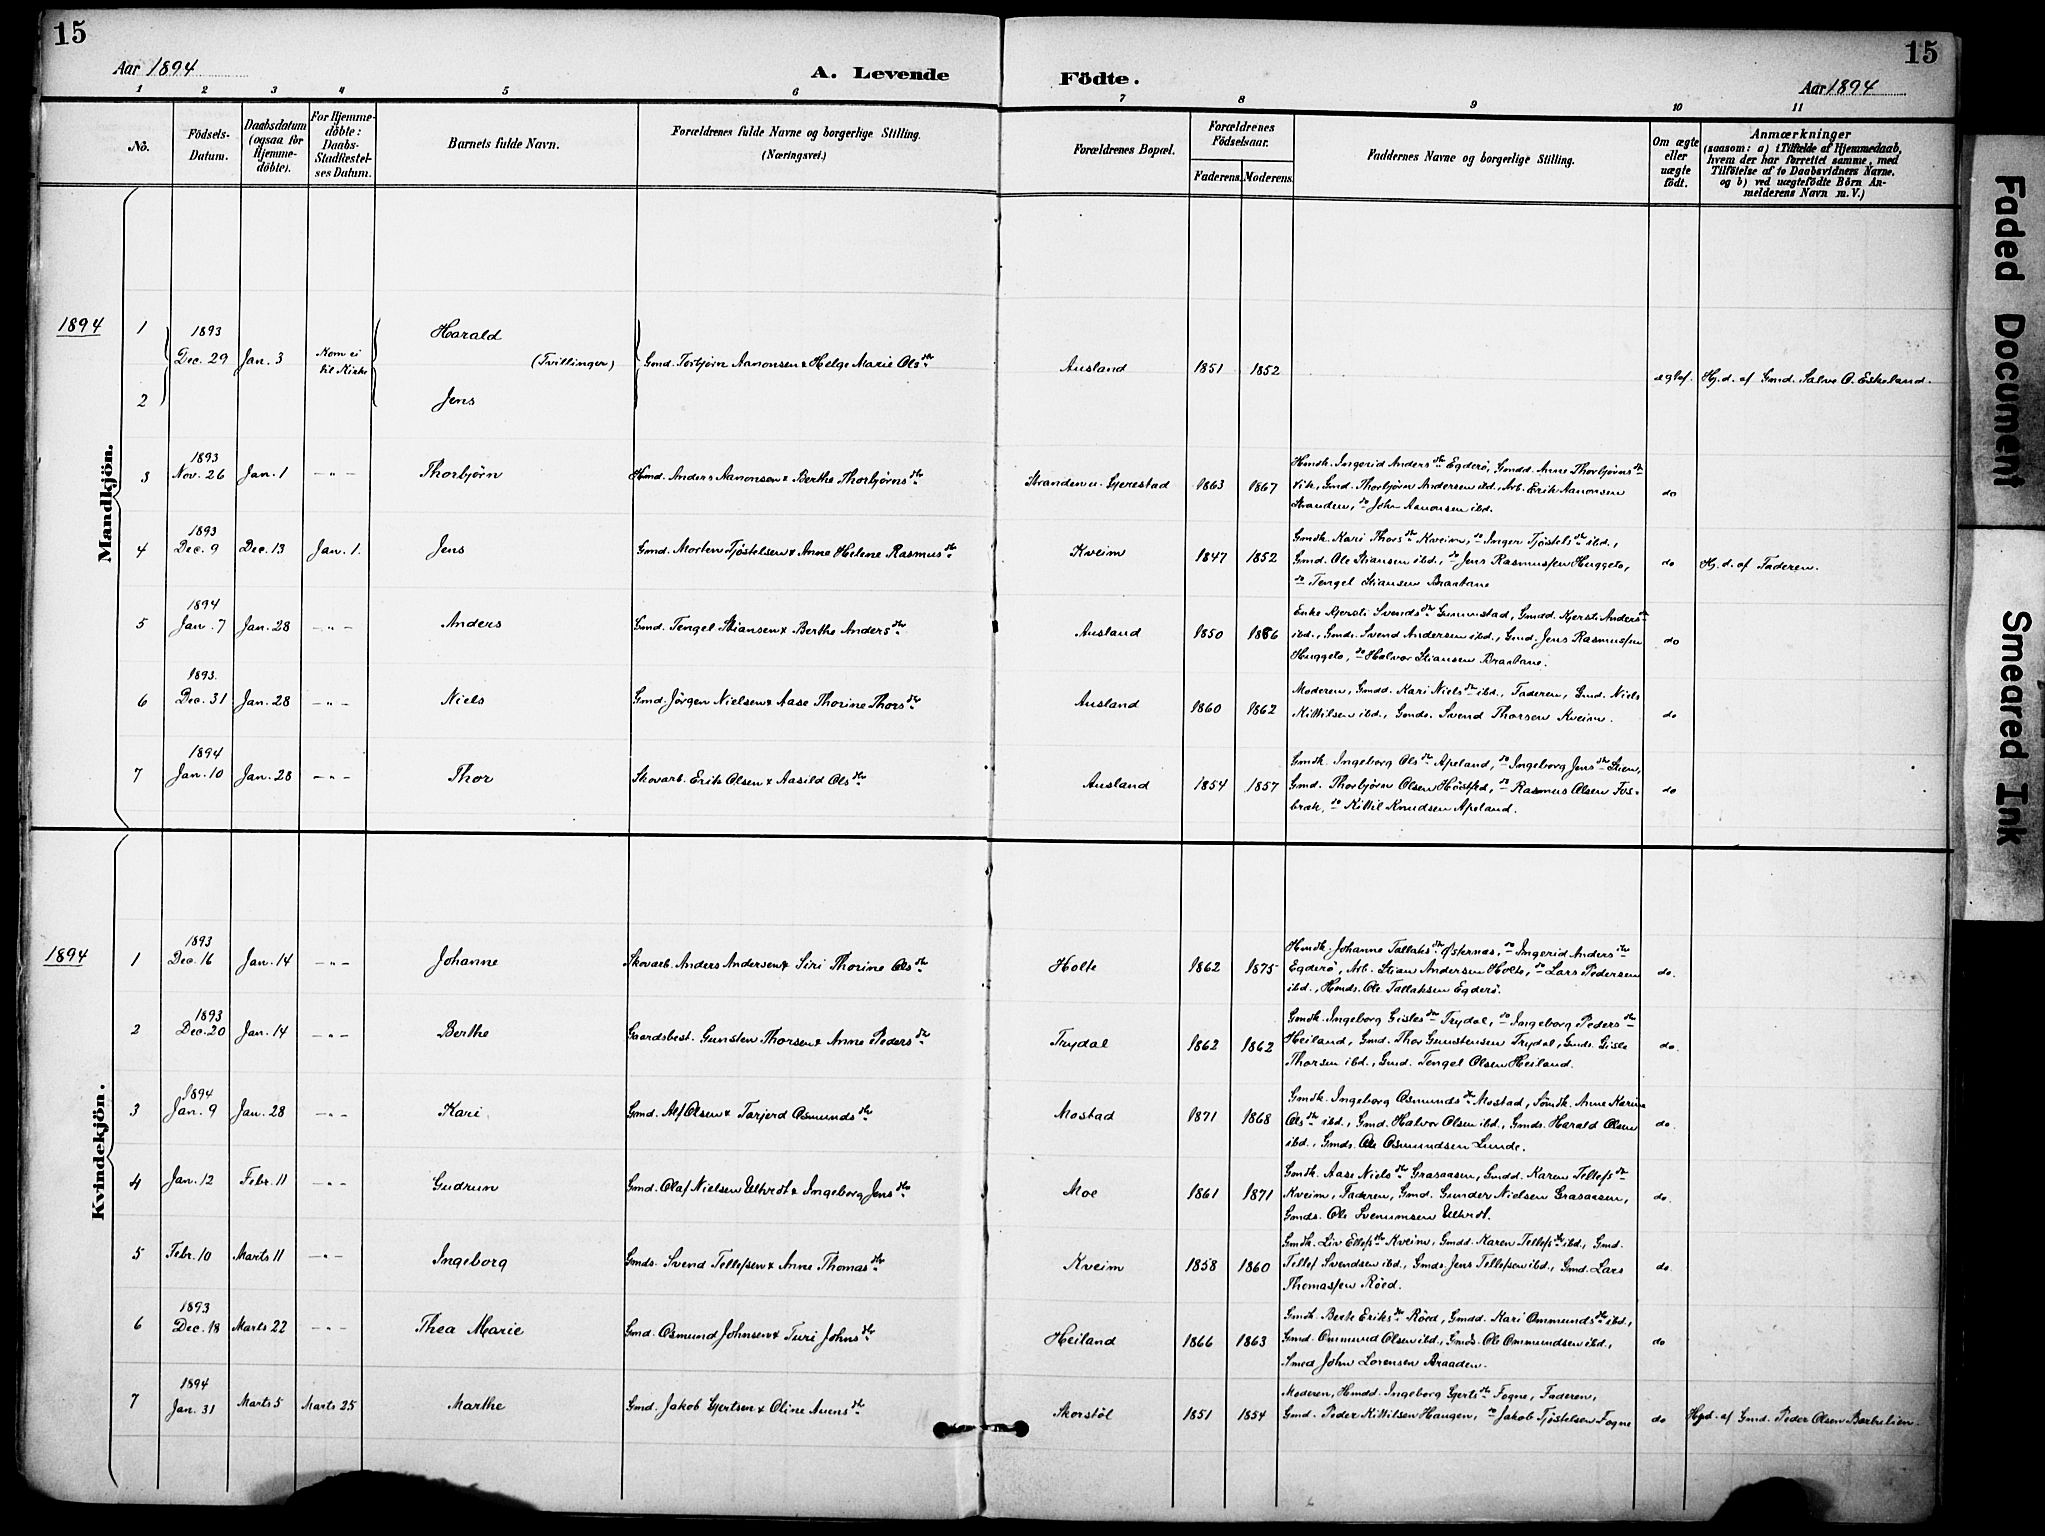 15
15
Aar 1894
A. Levende
Födte.
Aar 1894
1 2 3 4 5 6 7 8 9 10 11
No.
Födsels-Datum.
Daabsdatum (ogsaa for Hjemme-döbte).
For Hjemme-döbte: Daabs-Stadfæstel-ses Datum.
Barnets fulde Navn.
Forældrenes fulde Navne og borgerlige Stilling.
(Næringsvei.)
Forældrenes Bopæl.
Forældrenes Födselsaar.
Faderens. Moderens.
Faddernes Navne og borgerlige Stilling.
Om ægte eller uægte födt.
Anmærkninger
(saasom: a) i Tilfælde af Hjemmedaab, hvem der har forrettet samme, med Tilföielse af to Daabsvidners Navne, og b) ved uægtefödte Börn An-melderens Navn m. V.)
Mandkjön.
1894
1 1893 Harald
Dec. 29 Jan. 3 Kom ei til Kirke (Tvillinger) Gmd. Torbjørn Aanonsen & Helge Marie Olsdtr. Ausland 1851 1852 egtef. Hj.d. af Gmd. Salve O. Eskeland.
2 Jens
3 1893 Nov. 26 Jan. 1 -"- Thorbjørn Hmd. Anders Aanonsen & Berthe Thorbjørnsdtr. Stranden u. Gjerestad 1863 1867
Hmdk. Ingerid Andersdtr. Egderö, Gmdd. Anne Thorbjørnsdtr.
Vik, Gmd. Thorbjørn Andersen ibd., Arb. Erik Aanonsen
Stranden, do John Aanonsen ibd. do
4 1893 Dec. 9 Dec. 13 Jan. 1. Jens Gmd. Morten Tjøstelsen & Anne Helene Rasmusdtr. Kveim 1847 1852
Gmdk. Kari Thorsdtr. Kveim, do Inger Tjøstelsdtr. ibd.,
Gmd. Ole Stiansen ibd., do Jens Rasmussen Huggeto,
do Tengel Stiansen Braatane do Hj.d. af Faderen.
5 1894 Jan. 7 Jan. 28 -"- Anders Gmd. Tengel Stiansen & Berthe Andersdtr. Ausland 1850 1866
Enke Kjersti Svendsdtr. Gunnustad, Gmdd. Kjersti Andersdtr.
ibd., Gmds. Svend Andersen ibd., Gmd. Jens Rasmussen
Huggeto, do Halvor Stiansen Braatane. do
6 1893. Dec. 31 Jan. 28 -"- Niels Gmd. Jörgen Nielsen & Aase Thorine Thorsdtr. Ausland 1860 1862
Moderen, Gmdd. Kari Nielsdtr. ibd., Faderen, Gmd. Niels
Kittilsen ibd., Gmds. Svend Thorsen Kveim. do
7 1894 Jan. 10 Jan. 28 -"- Thor Skovarb. Erik Olsen & Aasild Olsdtr. Ausland 1854 1857
Gmdk. Ingeborg Olsdtr. Apeland, do Ingeborg Jensdtr. Stien,
Gmd. Thorbjørn Olsen Höisted, do Rasmus Olsen Fos-
bræk, do Kittil Knudsen Apeland. do
Kvindekjön.
1894
1 1893 Dec. 16 Jan. 14 -"- Johanne Skovarb. Anders Andersen & Siri Thorine Olsdtr. Holte 1862 1875
Hmdk. Johanne Tallaksdtr. Østernæs, do Ingerid Andersdtr.
Egderö, Arb. Stian Andersen Holte, do Lars Pedersen
ibd., Hmds. Ole Tallaksen Egderö. do.
2 1893 Dec. 20 Jan. 14 -"- Berthe Gaardsbest. Gunsten Thorsen & Anne Pedersdtr. Trydal 1862 1862
Gmdk. Ingeborg Gislesdtr. Trydal, do Ingeborg Pedersdtr.
Heiland, Gmd. Thor Gunstensen Trydal, Gmds. Gisle
Thorsen ibd., Gmd. Tengel Olsen Heiland. do.
3 1894 Jan. 9 Jan. 28 -"- Kari Gmd. Alf Olsen & Tarjerd Osmundsdtr. Mostad 1871 1868
Gmdk. Ingeborg Osmundsdtr. Mostad, Sömdk. Anne Karine
Olsdtr. ibd., Gmd. Halvor Olsen ibd., Gmds. Harald Olsen
ibd., Gmds. Ole Osmundsen Lunde. do.
4 Jan. 12 Febr. 11 Gudrun Gmd. Olaf Nielsen Ulltveit & Ingeborg Jensdtr. Moe 1861 1871
Gmdk. Aase Nielsdtr. Grasaasen, Gmdd. Karen Tellefsdtr.
Kveim, Faderen, Gmd. Gunder Nielsen Grasaasen,
Gmds. Ole Svenumsen Ulltveit. do.
5 Febr. 10 Marts 11 -"- Ingeborg Gmds. Svend Tellefsen & Anne Thomasdtr. Kveim 1858 1860
Gmdk. Liv Ellefsdtr. Kveim, Gmdd. Karen Tellefsdtr. ibd., Gmd.
Tellef Svendsen ibd., Gmds. Jens Tellefsen ibd., Gmd. Lars
Thomassen Röed. do.
6 1893 Dec. 18 Marts 22 -"- Thea Marie Gmd. Osmund Johnsen & Turi Johnsdtr. Heiland 1866 1863
Gmdk. Berte Eriksdtr. Röed, Gmdd. Kari Ommundsdtr. ibd.,
Gmd. Ommund Olsen ibd., Gmds. Ole Ommundsen ibd.,
Smed John Lorensen Braaden. do
7 1894 Jan. 31 Marts 5 Marts 25 Marthe Gmd. Jakob Gjertsen & Oline Auensdtr. Skorstöl 1851 1854
Moderen, Hmdd. Ingeborg Gjertsdtr. Fogne, Faderen,
Gmd. Peder Kittilsen Haugen, do Jakob Tjøstelsen Fogne do Hjd. af Gmd. Peder Olsen Barbulien.
Faded Document
Smeared Ink